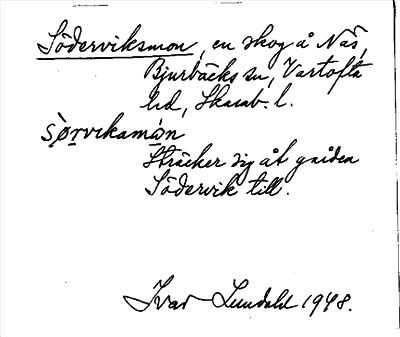 Söderviksmon, en skog å Näs,
Bjurbäcks sn, Vartofta
hd, Skarab. l.
sørvikamȧn
Sträcker sig åt gården
Södervik till.
Ivar Lundahl 1948.